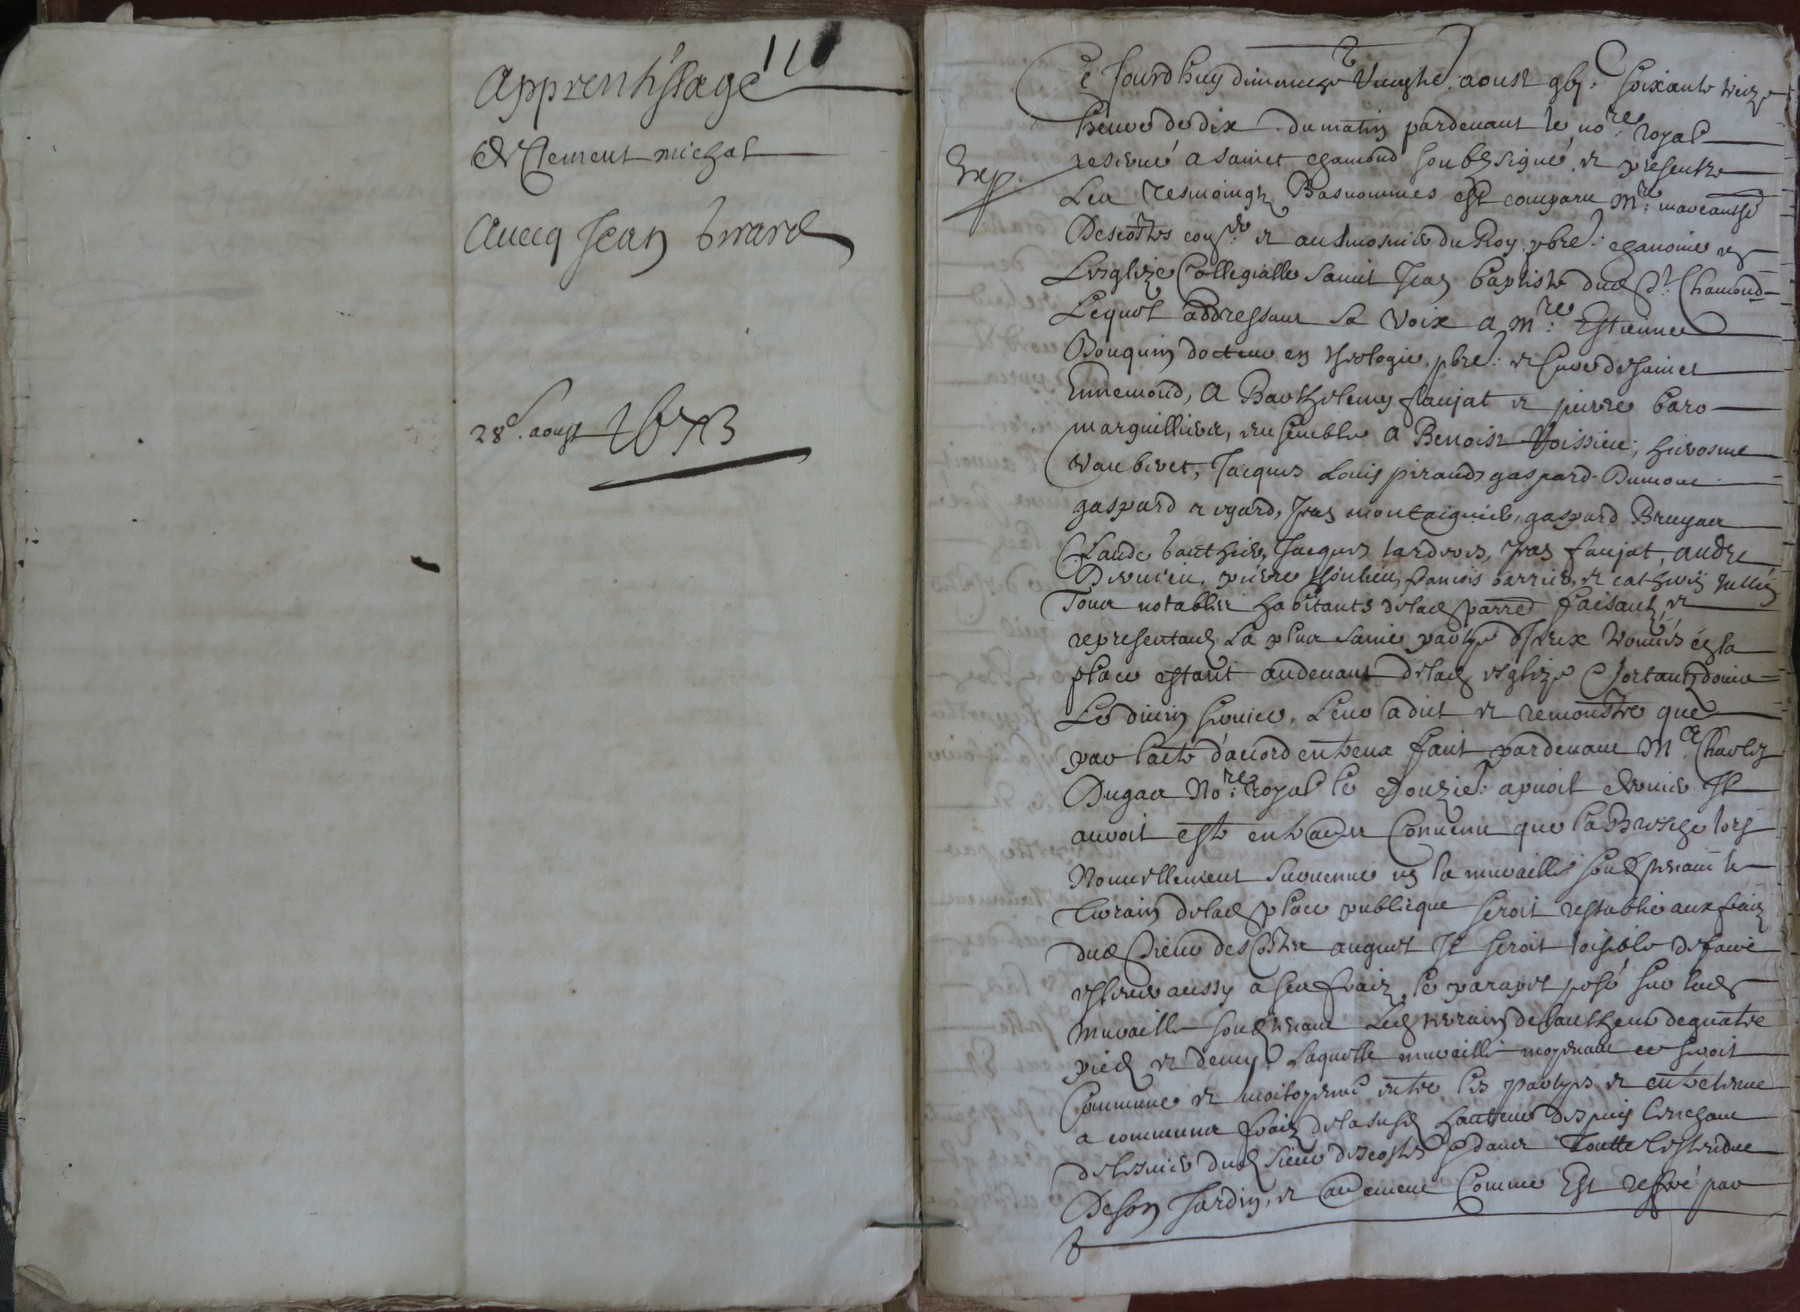 118
Apprentissage
de Clement michal
Avecq Jean
28e. aoust 1673
Exp.
Ce Jourdhuy dimenche vingthe. aoust gbj. soixante treize
heure de dix du matin pardevant le nore. royal
reservé a sainct chamond soubzsigné, et presentz
Les tesmoingz Basnommes est comparu Mre.
Descostes conser. et aulmosnier du Roy pbre. chanoine en
Lesglize Collegialle sainct Jean baptiste dud St. Chamond
Lequel addressant sa voix a Mre. Estienne
Bouquin docteur en theologie, pbre. et Curé de sainct
Ennemond, A Barthelemy faujat et pierre baro
marguilliers, ensemble A Benoist Voissieu, hierosme
vaubivet, Jacques Louis piraud, gaspard Dumont
gaspard regard, Jean montaignier, gaspard Bruyas
Claude bauthier, Jacques tardives, Jean faujat, andre
pierre francois barrier, et
Tous notables habitants delad parre. faisant et
representant La plus saine partye dIceux en la
place estant audevant delad esglize sortant douir
Le divin service, Leur a dict et remonstré que
par lacte daccord entreux faict pardevant Me. Charles
Dugas Nore. royal le douzie. apvril dernier Il
auroit este entraeux Convenu que la Bresche lors
Nouvellement survenue en la muraille soustenant le
terrain delad place publicque seroit restablie aux fraiz
dud sieur desCostes auquel Il seroit loisible de faire
eslever aussy a ses fraiz, le parapet posé sur lad
muraille soustenant Led terrain de lautheur de quatre
pied et demy. Laquelle muraille moyenant ce seroit
Commune et moitoyenne entre les partyes et entretenue
a communs fraiz delasusd hauteur despuis
dud sieur descostes dans toutte lestendue
De son Jardin, et autrement Comme Est resservé par